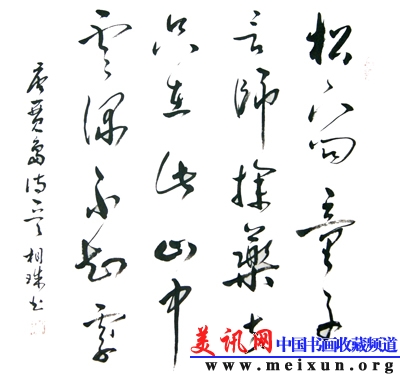 松下问童子
言師採藥去
只在此山中
雲深不知處
唐賈島诗一首 相珠书
美讯网 中国书画收藏频道
www.meixun.org